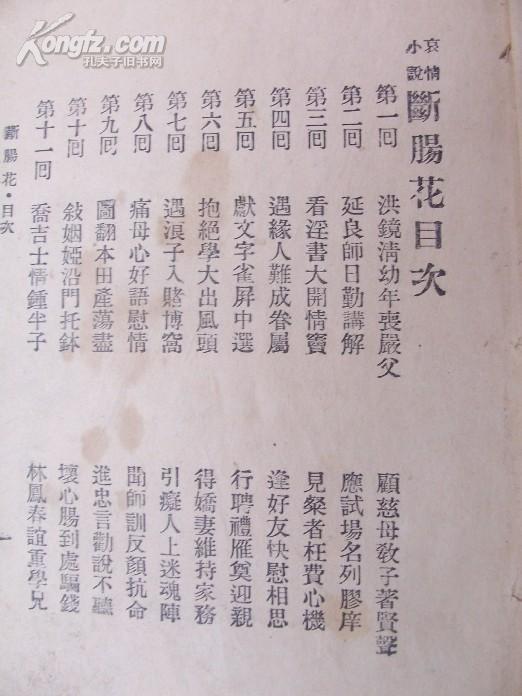 Kongfz.com
孔夫子旧书网
哀情小說 斷腸花目次
第一回 洪鏡清幼年喪嚴父 顧慈母敎子著賢聲
第二回 延良師日勤講解 應試場名列膠庠
第三回 看淫書大開情竇 見粲者枉費心機
第四回 遇緣人難成眷屬 逢好友快慰相思
第五回 獻文字雀屏中選 行聘禮雁奠迎親
第六回 抱絕學大出風頭 得嬌妻維持家務
第七回 遇浪子入賭博窩 引癡人上迷魂陣
第八回 痛母心好語慰情 聞師訓反顏抗命
第九回 圖翻本田產蕩盡 進忠言勸說不聽
第十回 敍姻婭沿門托鉢 壞心腸到處騙錢
第十一回 喬吉士情鍾半子 林鳳春誼重學兄
斷腸花·目次
一